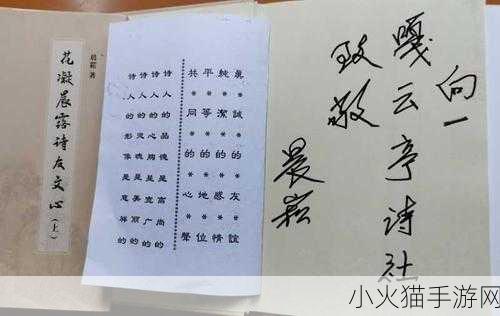 花凝晨露诗友文心（上）
晨崧 著
眞*誠*的*友*誼
純*潔*的*感*情
平*等*的*地*位
共*同*的*心*聲
诗人的品德是高尚的
诗人的心胸是宽广的
诗人的灵魂是美丽的
诗人的形像是慈祥的
向一
嘎云亭诗社
致敬
晨崧
小火猫手游网